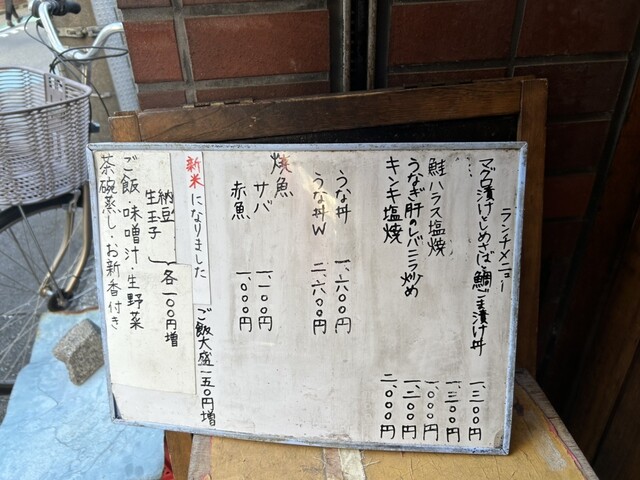 ランチメニュー
マグロ漬けとしめさば、鯛ごま漬け丼 一、三〇〇円
一、三〇〇円
鮭ハラス塩焼 一、〇〇〇円
うなぎ肝のレバニラ炒め 一、二〇〇円
キンキ塩焼 二、〇〇〇円
うな丼 一、六〇〇円
うな丼W 二、六〇〇円
焼魚
サバ 一、一〇〇円
赤魚 一、〇〇〇円
ご飯大盛一五〇円増
新米になりました
納豆
生玉子
各一〇〇円増
ご飯・味噌汁・生野菜
茶碗蒸し・お新香付き